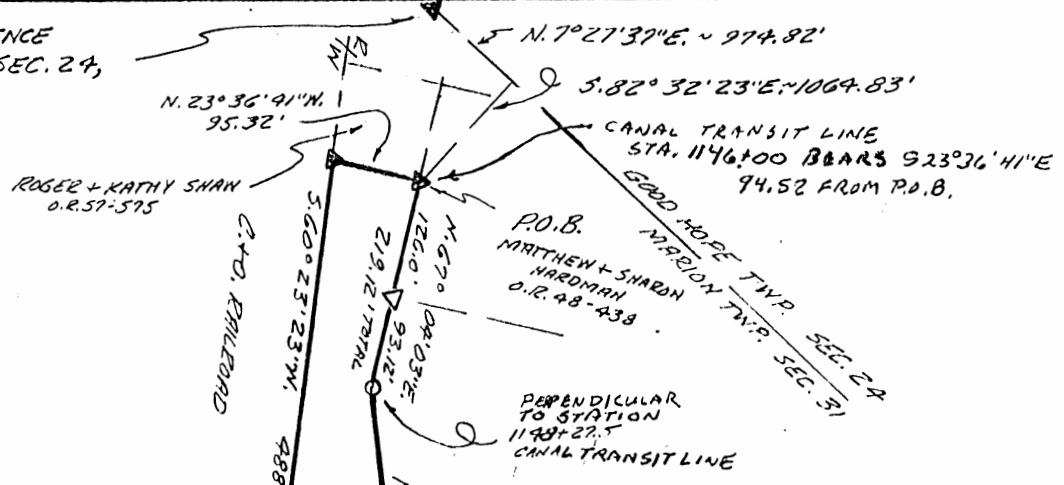 ENCE
SEC. 24,
R/W
N. 7°27'37"E. ~ 974.82'
S. 82° 32' 23"E.~1064.83'
N. 23° 36' 41"W.
95.32'
CANAL TRANSIT LINE
STA. 1146+00 BEARS S23°36'41"E
94.52 FROM P.O.B.
ROGER + KATHY SHAW
O.R. 57-575
P.O.B.
MATTHEW + SHARON
HARDMAN
O.R. 48-438
GOOD HOPE TWP. SEC. 24
MARION TWP. SEC. 31
C.+O. RAILROAD
S. 60° 23' 23"W. 488
N. 67° 04' 03"E.
126.0'
93.12'
219.12' TOTAL
PERPENDICULAR
TO STATION
1148+27.5
CANAL TRANSIT LINE